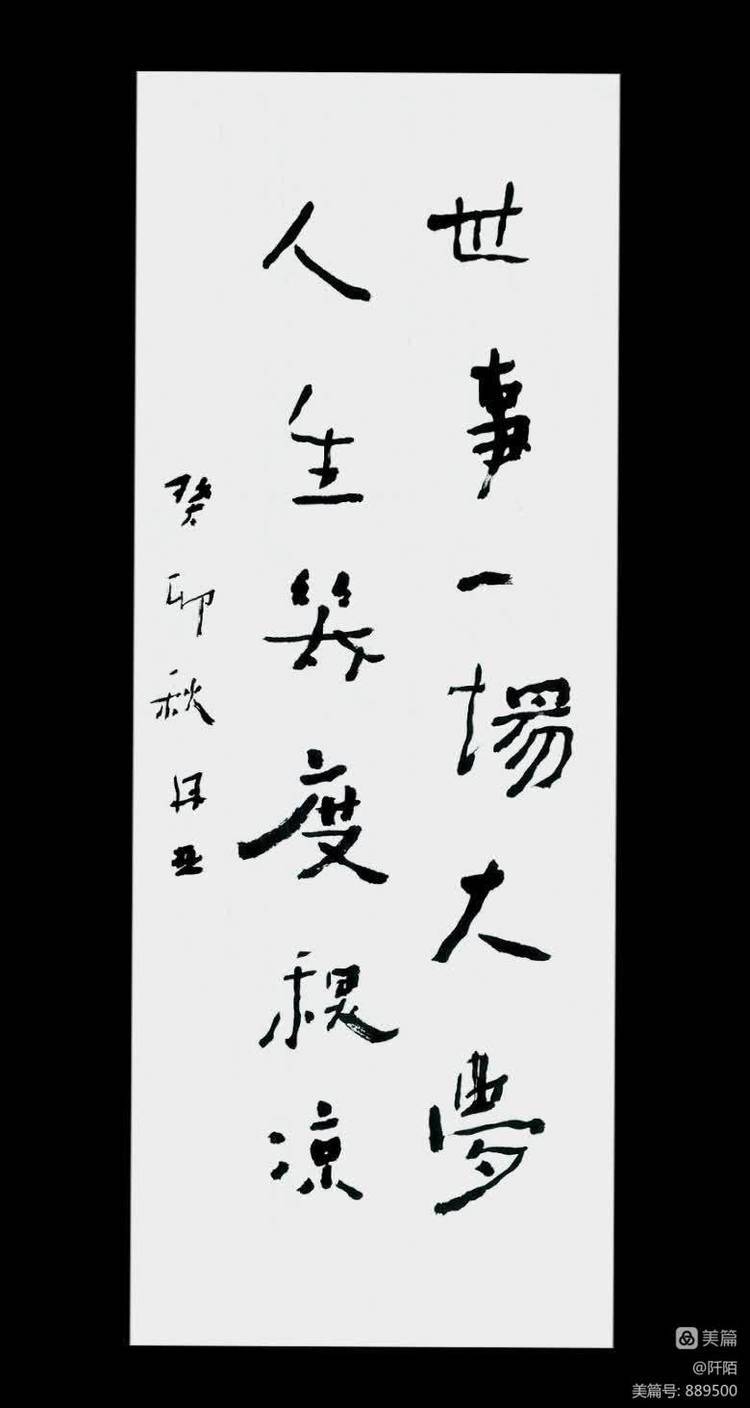 世事一場大夢
人生幾度秋凉
癸卯秋
美篇
@阡陌
美篇号: 889500